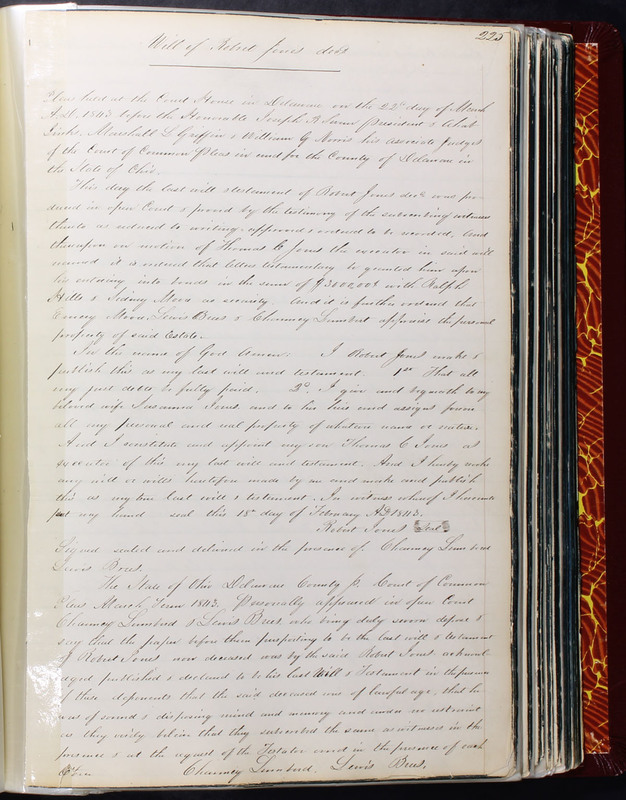 225
Will of Robert Jones decd
Pleas held at the Court House in Delaware on the 22d day of March
A.D. 1843 before the Honorable Joseph R Swan President &
Marshall L Griffin & William G Norris his associate Judges
of the Court of Common Pleas in and for the County of Delaware in
the State of Ohio.
This day the last will & testament of Robert Jones decd was pro-
duced in open Court & proved by the testimony of the subscribing witnesses
thereto as reduced to writing, approved & ordered to be recorded. And
thereupon on motion of Thomas C Jones the executor in said will
named it is ordered that letters testamentary be granted him upon
his entering into bonds in the sum of with Ralph
Hills & Sidney Moore as security. And it is further ordered that
Emery Moore, Lewis Brees & Chauncy appraise the personal
property of said Estate.
In the name of God Amen. I Robert Jones make &
publish this as my last will and testament. 1st That all
my just debts be fully paid. 2d I give and bequeath to my
beloved wife Susanna Jones and to her heirs and assigns forever
all my personal and real property of whatever name or nature.
And I constitute and appoint my son Thomas C Jones as
executor of this my last will and testament. And I hereby revoke
any will or wills heretofore made by me and make and publish
this as my true last will & testament. In witness whereof I hereunto
put my hand seal this 18th day of February A.D. 1843.
Robert Jones Seal
Signed sealed and delivered in the presence of Chauncy
Lewis Brees.
The State of Ohio Delaware County ss. Court of Common
Pleas March Term 1843. Personally appeared in open Court
Chauncy & Lewis Brees who being duly sworn depose &
say that the paper before them purporting to be the last will & testament
of Robert Jones now deceased was by the said Robert Jones acknowl
edged published & declared to be his last Will & Testament in the presence
of these deponents that the said deceased was of lawful age, that he
was of sound & disposing mind and memory and under no restraint
as they verily believe that they subscribed the same as witnesses in the
presence & at the request of the Testator and in the presence of each
other. Chauncy Lewis Brees.